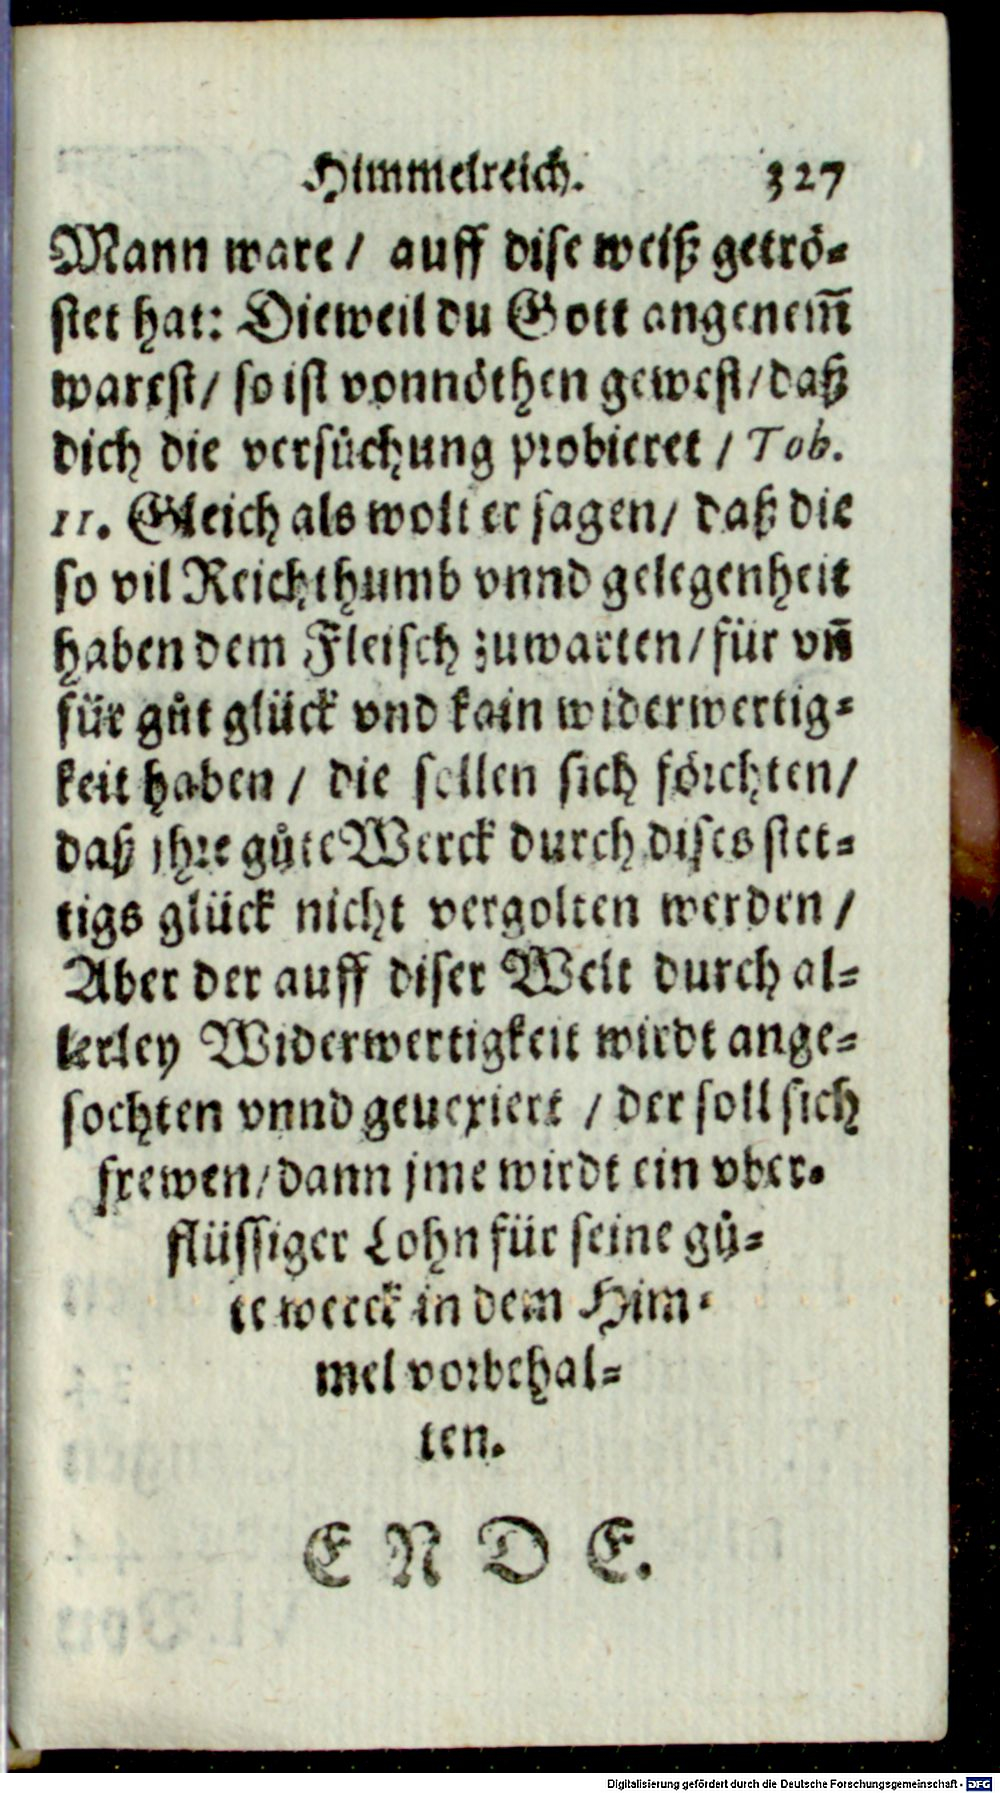 Himmelreich. 327
Mann ware / auff dise weiß getrö-
stet hat: Dieweil du Gott angenem̃
warest / so ist vonnöthen gewest / daß
dich die versůchung probieret / Tob.
11. Gleich als wolt er sagen / daß die
so vil Reichthumb vnnd gelegenheit
haben dem Fleisch zuwarten / für vñ
für gůt glück vnd kain widerwertig-
keit haben / die sollen sich förchten /
daß jhre gůte Werck durch dises stet-
tigs glück nicht vergolten werden /
Aber der auff diser Welt durch al-
lerley Widerwertigkeit wirdt ange-
fochten vnnd geuexiert / der soll sich
frewen / dann jme wirdt ein vber-
flüssiger Lohn für seine gů-
te werck in dem Him-
mel vorbehal-
ten.
E N D E.
Digitalisierung gefördert durch die Deutsche Forschungsgemeinschaft - DFG